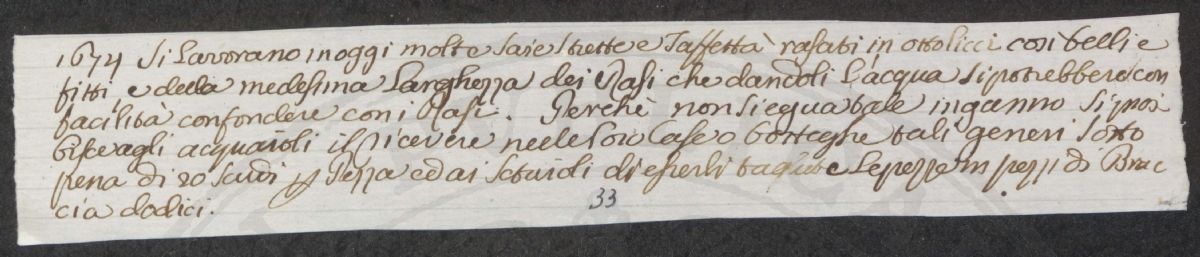 1674 Si Lavorano in oggi molte saie strette e Taffettà rasati in ottolicci così belli e
fitti e della medesima Larghezza dei Rasi che dandoli l'acqua si potrebbero con
facilità confondere con i Rasi. Perchè non siegua tale inganno si proi
bisce agli acquaioli il ricevere nelle loro Case o botteghe tali generi sotto
pena di 20 Scudi Pezza ed ai setaioli di esserli tagliate le pezze in pezzi di Brac
cia dodici.
33